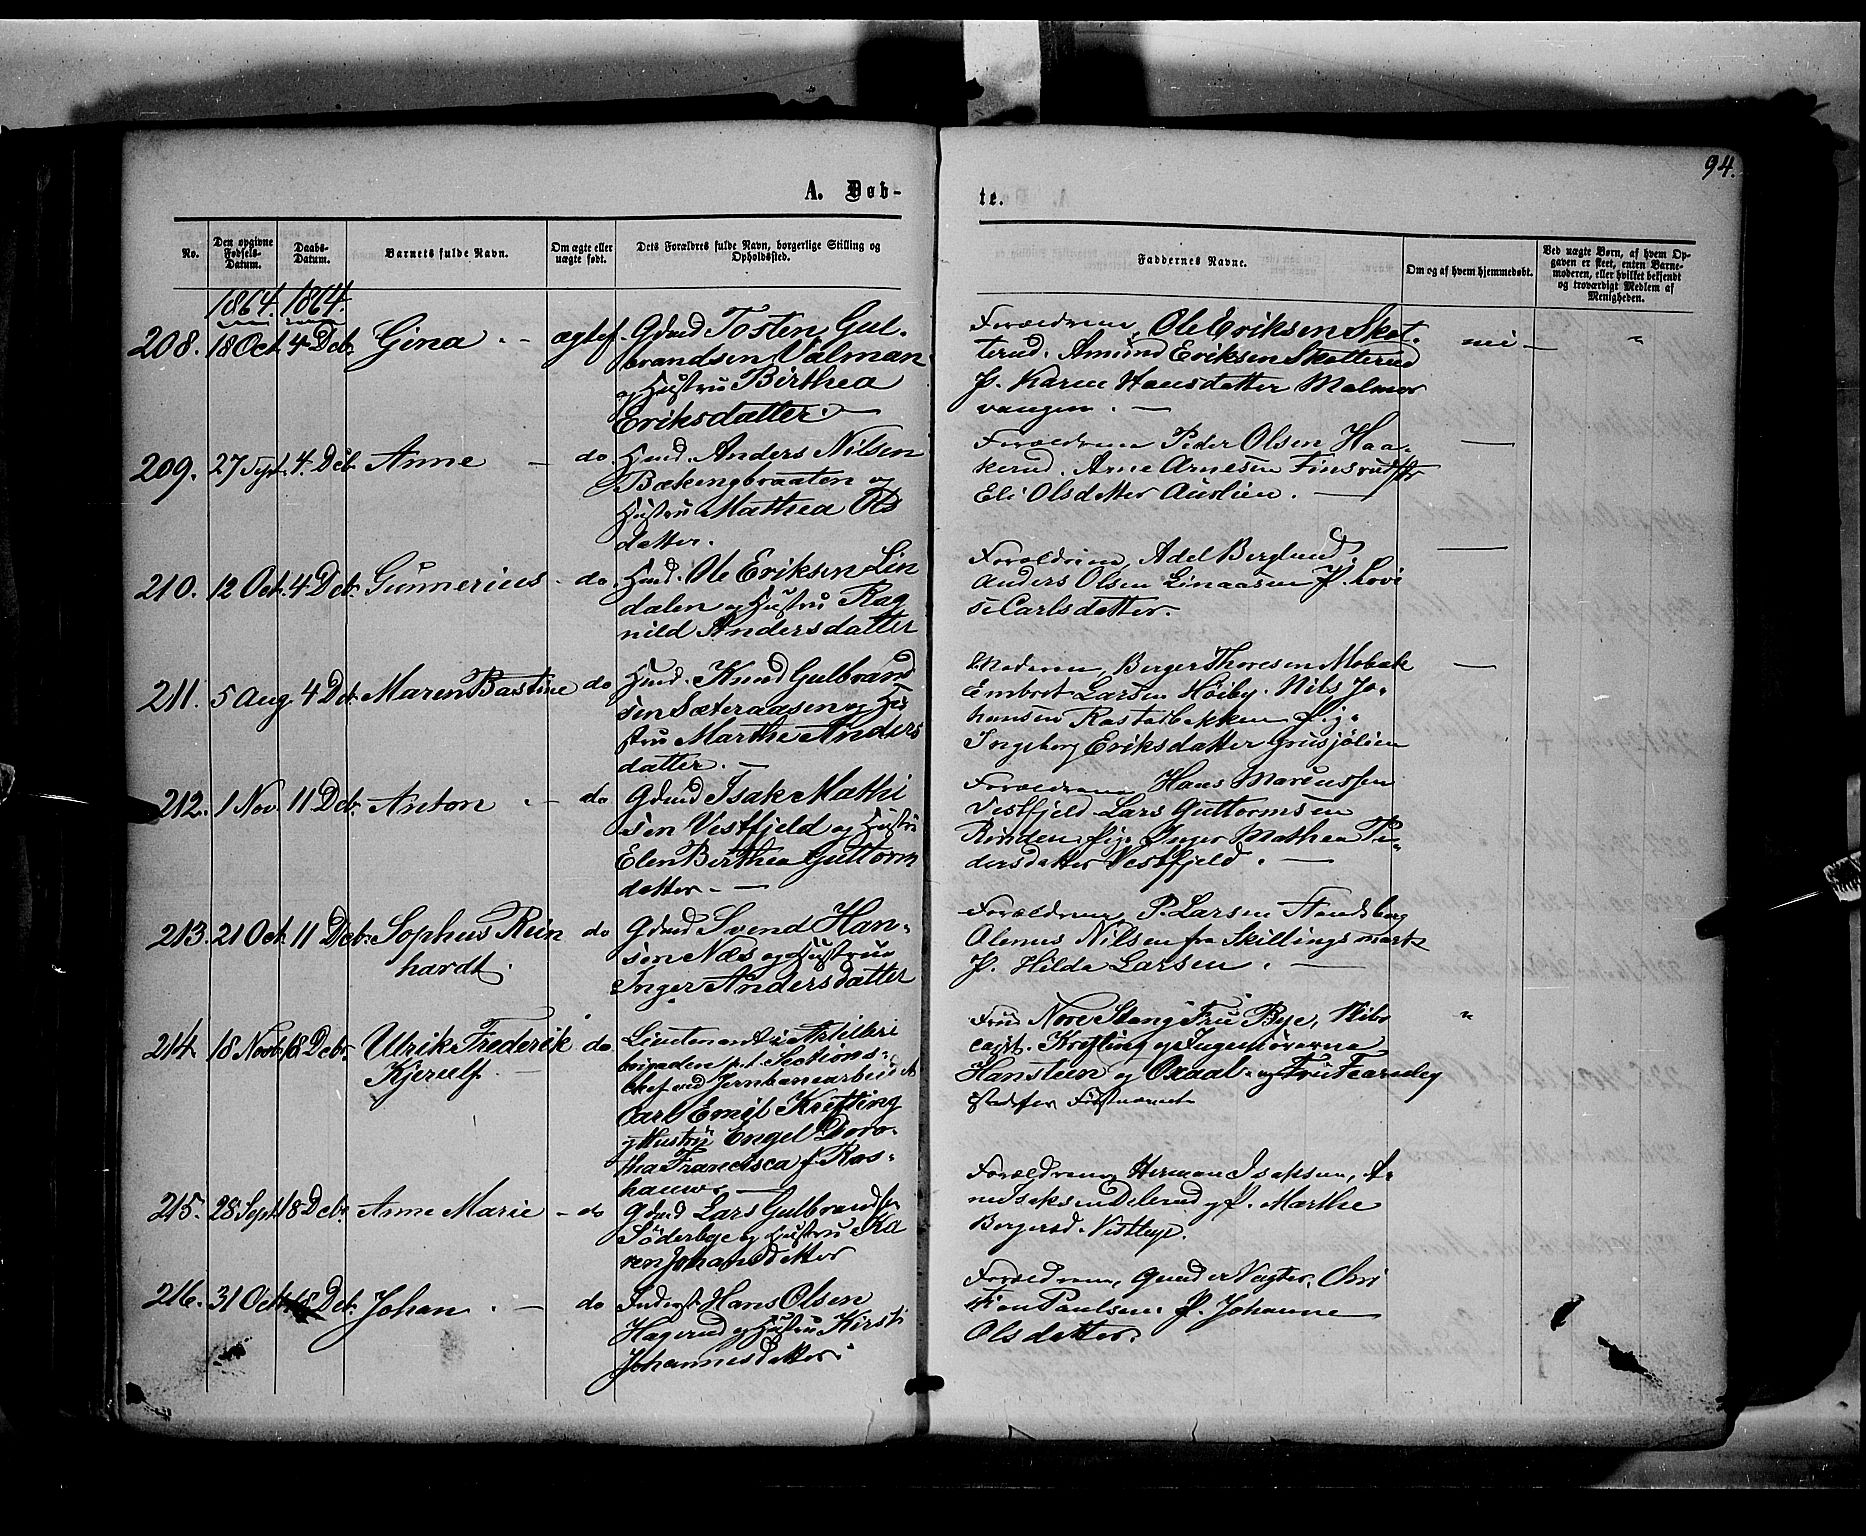 94.
A. Døb-
te.
No.
Den opgivne Fødsels-Datum.
Daabs-Datum.
Barnets fulde Navn.
Om ægte eller uægte født.
Dets Forældres fulde Navn, borgerlige Stilling og Opholdssted.
Faddernes Navne.
Om og af hvem hjemmedøbt.
Ved uægte Børn, af hvem Opgaven er skeet, enten Barnemoderen, eller hvilket bekjendt og troværdigt Medlem af Menigheden.
1864. 1864.
208. 18 Oct. 4 Debr. Gina - ægtef. Gdmd Tosten Gul-
brandsen Valman
og Hustru Birthea
Eriksdatter. -
Forældrene, Ole Eriksen Skot-
terud. Amund Eriksen Skotterud
P. Karen Hansdatter Malmer
vangen. -
nei -
"
209. 27 Sept. 4. Deb. Anne - do Hmd. Anders Nilsen
Bækengbraaten og
Hustru Mathea Ols
datter.
Forældrene Peder Olsen Haa-
kerud. Arne Arnesen Finsrud
Eli Olsdatter Aurlien. -
210. 12 Oct. 4 Deb. Gunnerius - do. Hmd. Ole Eriksen Lin
dalen og Hustru Rag
nild Andersdatter
Forældrene, Adel Berglund,
Anders Olsen Linaasen P. Lovi
se Carlsdatter.
211. 5 Aug. 4 Deb. Maren Bastine do Hmd. Knud Gulbrand
sen Sæteraasen og Hu
stru Marthe Anders
datter. -
Moderen, Berger Thoresen Mobæk
Embret Larsen Høiby. Nils Jo-
hansen Rastadbakken Pig.
Ingeborg Eriksdatter Grusjølien
212. 1 Nov. 11 Deb. Anton - do Gdmd Isak Mathi
sen Vestfjeld og Hustru
Elen Birthea Guttorm
datter - -
Forældrene, Hans Marcussen
Vestfjeld. Lars Guttormsen
Rønden, Pig. Inger Mathea Pe-
dersdatter Vestfjeld. -
213. 21 Oct. 11 Deb. Sophus Rein do Gdmd Svend Han-
hardt.
sen Næs og Hustrue
Inger Andersdatter
Forældrene, P. Larsen
Olenus Nilsen fra Skillingsmark
P. Hilda Larsen. -
214. 18 Novb. 18 Debr. Ulrik Frederik do. Lieutenant i Artilleri
Kjerulf -
brigaden p.t. Sections-
chef ved Jernbanearbeidet
Carl Emil Krefting
og Hustru Engel Doro-
thea Francisca f. Ras-
hauw. -
Frue Nore Stang Fru Bye,
Krefting og Ingeniørerne
Hansteen og Oxaal - og Fru Fearnley
"
215. 28 Sept. 18 Debr. Anne Marie - do Gdmd Lars Gulbrandsen
Söderbye og Hustru Ka
ren Johansdatter
Forældrene, Herman Isaksen, A-
P. Marthe
216. 31 Oct. 18 Deb. Johan. - do Inderst Hans Olsen
Hagerud og Hustru Kirsti
Johannesdatter.
Forældrene, Vagter, Chri
stian Paulsen. P. Johanne
Olsdatter.